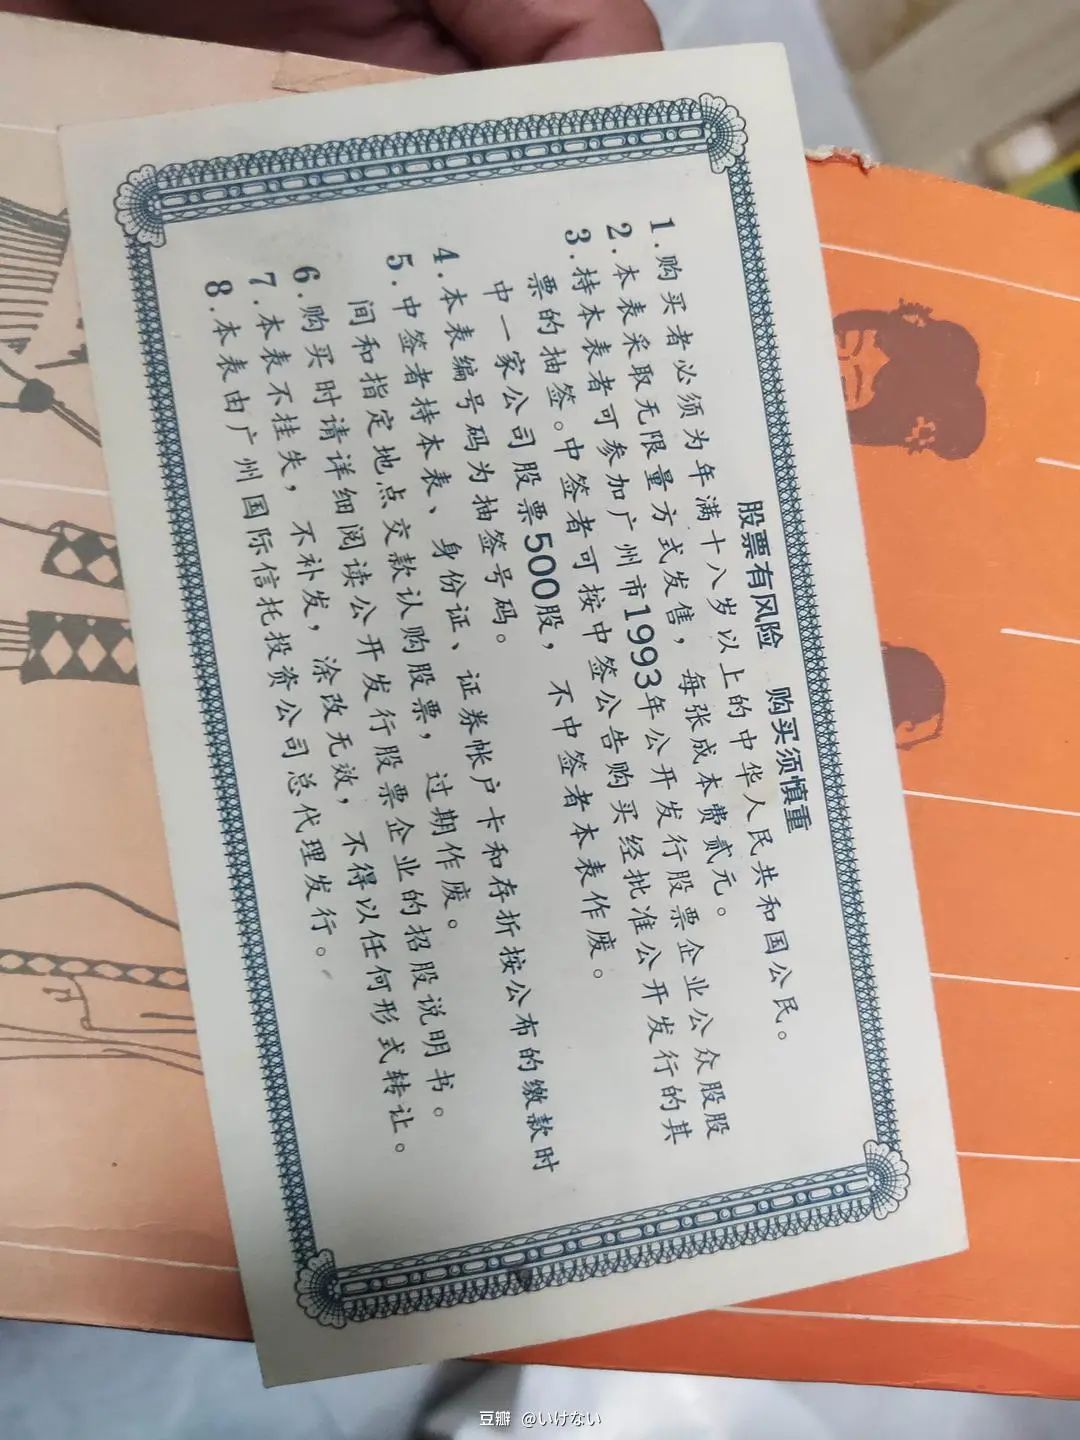 股票有风险 购买须慎重
1.购买者必须为年满十八岁以上的中华人民共和国公民。
2.本表采取无限量方式发售，每张成本费贰元。
3.持本表者可参加广州市1993年公开发行股票企业公众股股
票的抽签。中签者可按中签公告购买经批准公开发行的其
中一家公司股票500股，不中签者本表作废。
4.本表编号码为抽签号码。
5.中签者持本表、身份证、证券帐户卡和存折按公布的缴款时
间和指定地点交款认购股票，过期作废。
6.购买时请详细阅读公开发行股票企业的招股说明书。
7.本表不挂失，不补发，涂改无效，不得以任何形式转让。
8.本表由广州国际信托投资公司总代理发行。
豆瓣 @いけない